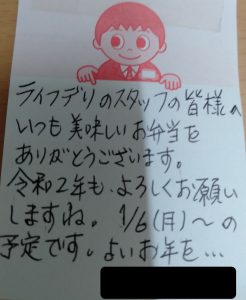 ライフデリのスタッフの皆様へ
いつも美味しいお弁当を
ありがとうございます。
令和2年も、よろしくお願い
しますね。1/6(月)～の
予定です。よいお年を…